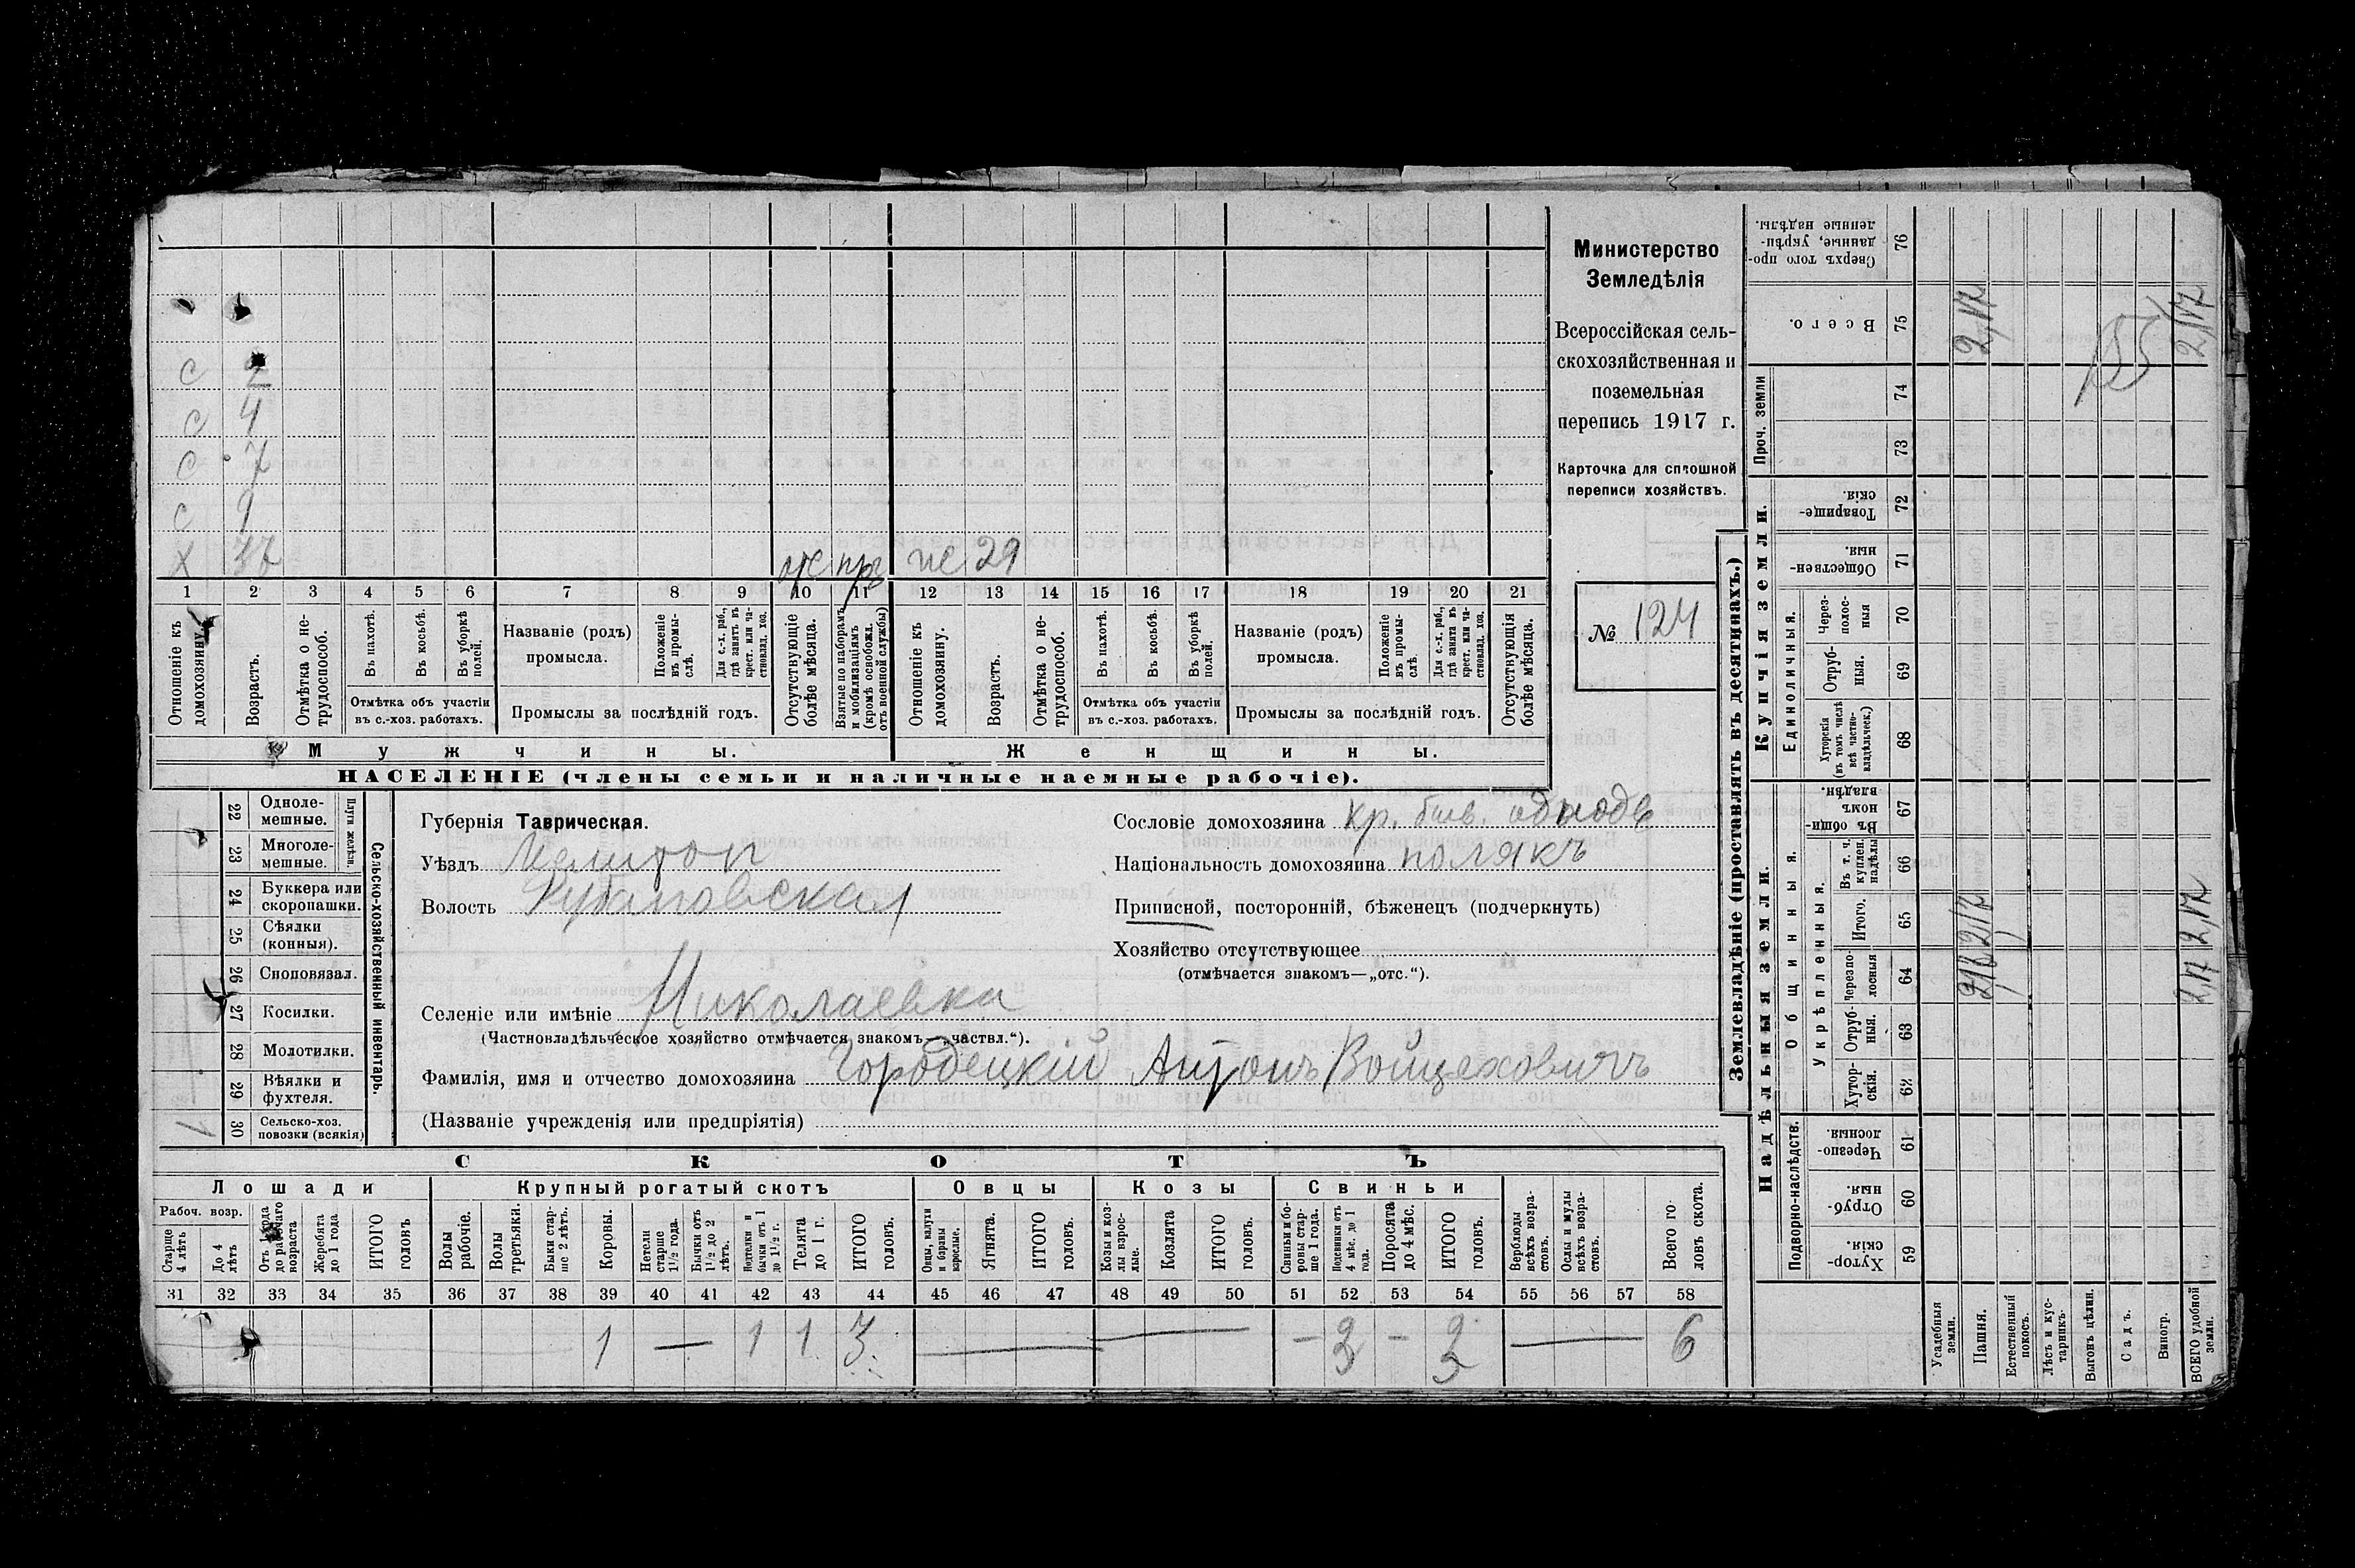 с 2
с 4
с 7
с 9
х 37 же 29
1 2 3 4 5 6 7 8 9 10 11 12 13 14 15 16 17 18 19 20 21
Отношеніе къ домохозяину.
Возрастъ.
Отмѣтка о не-трудоспособ.
Въ пахотѣ.
Въ косьбѣ.
Въ уборкѣ полей.
Отмѣтка объ участіи
въ с.-хоз. работахъ.
Названіе (родъ)
промысла.
Положеніе въ промы-слѣ.
Для с.-х. раб., гдѣ занятъ въ крест. или ча-стновлад. хоз.
Промыслы за послѣдній годъ.
Отсутствующіе болѣе мѣсяца.
Взятые по наборамъ и мобилизаціямъ (кромѣ освобожд. отъ военной службы)
Отношеніе къ домохозяину.
Возрастъ.
Отмѣтка о не-трудоспособ.
Въ пахотѣ.
Въ косьбѣ.
Въ уборкѣ полей.
Отмѣтка объ участіи
въ с.-хоз. работахъ.
Названіе (родъ)
промысла.
Положеніе въ промы-слѣ.
Для с.-х. раб., гдѣ занята въ крест. или ча-стновлад. хоз.
Промыслы за послѣдній годъ.
Отсутствующія болѣе мѣсяца.
Мужчины. Женщины.
НАСЕЛЕНІЕ (члены семьи и наличные наемные рабочіе).
Министерство
Земледѣлія
Всероссійская сель-
скохозяйственная и
поземельная
перепись 1917 г.
Карточка для сплошной
переписи хозяйствъ.
№ 124
Сельско-хозяйственный инвентарь.
Плуги желѣзн.
22 Одноле-мешные.
23 Многоле-мешные.
24 Буккера или скоропашки.
25 Сѣялки (конныя).
26 Сноповязал.
27 Косилки.
28 Молотилки.
29 Вѣялки и фухтеля.
30 Сельско-хоз. повозки (всякія) 1
Губернія Таврическая.
Уѣздъ Мелитоп
Волость Рубановская
Селеніе или имѣніе Николаевка
(Частновладѣльческое хозяйство отмѣчается знакомъ—„частвл.“).
Фамилія, имя и отчество домохозяина Городецкій Антонъ Войцеховичъ
(Названіе учрежденія или предпріятія)
Сословіе домохозяина кр. быв. однодв
Національность домохозяина полякъ
Приписной, посторонній, бѣженецъ (подчеркнуть)
Хозяйство отсутствующее
(отмѣчается знакомъ—„отс.“).
СКОТЪ
Лошади Крупный рогатый скотъ Овцы Козы Свиньи
Рабоч. возр.
Старше 4 лѣтъ
До 4 лѣтъ
Жеребята до 1 года
ИТОГО головъ
Волы рабочіе.
Волы третьяки.
Быки стар-ше 2 лѣтъ.
Коровы.
Нетели старше 1½ года.
Бычки отъ 1½ до 2 лѣтъ.
бычки отъ 1 до 1½ г.
Телята до 1 г.
ИТОГО головъ.
Овцы, валухи и бараны взрослые.
Ягнята.
ИТОГО головъ.
Козы и коз-лы взрос-лые.
Козлята
ИТОГО головъ.
Свиньи и бо-ровы стар-ше 1 года.
Подсвинки отъ 4 мѣс. до 1 года.
Поросята до 4 мѣс.
ИТОГО головъ.
Верблюды всѣхъ возра-стовъ.
Ослы и мулы всѣхъ возра-стовъ.
Всего го-ловъ скота.
31 32 33 34 35 36 37 38 39 40 41 42 43 44 45 46 47 48 49 50 51 52 53 54 55 56 57 58
1 — 1 1 3 — — — 3 — 3 — 6
Землевладѣніе (проставлять въ десятинахъ.)
Купчія земли.
Надѣльныя земли.
Сверхъ того про-данные, укрѣп-ленные надѣлы. 76
Всего. 75 2,17 2,17
Проч. земли 74
73
Товарище-скія. 72
Обществен-ныя. 71
Единоличныя.
Через-полос-ныя 70
Отруб-ныя. 69
Хуторскія (въ томъ числѣ всѣ частно-владѣльческ.) 68
Общинныя.
Въ общин-номъ владѣн. 67
Укрѣпленныя.
Въ т. ч. куплен. надѣлы 66
Итого. 65 2,17 2,17
Черезпо-лосныя 64 2,17
Отруб-ныя. 63
Хутор-скія. 62
Подворно-наслѣдств.
Черезпо-лосныя. 61
Отруб-ныя. 60
Хутор-скія. 59
Усадебныя земли.
Пашня.
Естественный покосъ.
Лѣсъ и кус-тарникъ.
Выгонъ цѣлин.
Садъ.
Виногр.
ВСЕГО удобной земли.